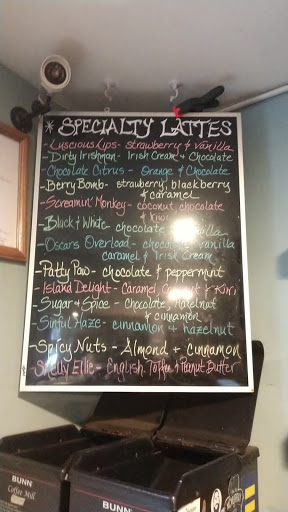 * SPECIALTY LATTES
- Luscious Lips - strawberry & vanilla
- Dirty Irishman - Irish Cream & Chocolate
- Chocolate Citrus - Orange & Chocolate
- Berry Bomb - strawberry, blackberry
& caramel
- Screamin' Monkey - coconut, chocolate
&
- Black & White - chocolate
- Oscars Overload - chocolate, vanilla
caramel & Irish Cream
- Patty Paw - chocolate & peppermint
- Island Delight - Caramel, & Kiwi
- Sugar & Spice - Chocolate, Hazelnut
& cinnamon
- Sinful Haze - cinnamon & hazelnut
- Spicy Nuts - Almond & cinnamon
- Smelly Ellie - English Toffee & Peanut Butter
BUNN
Coffee Mill
BUNN